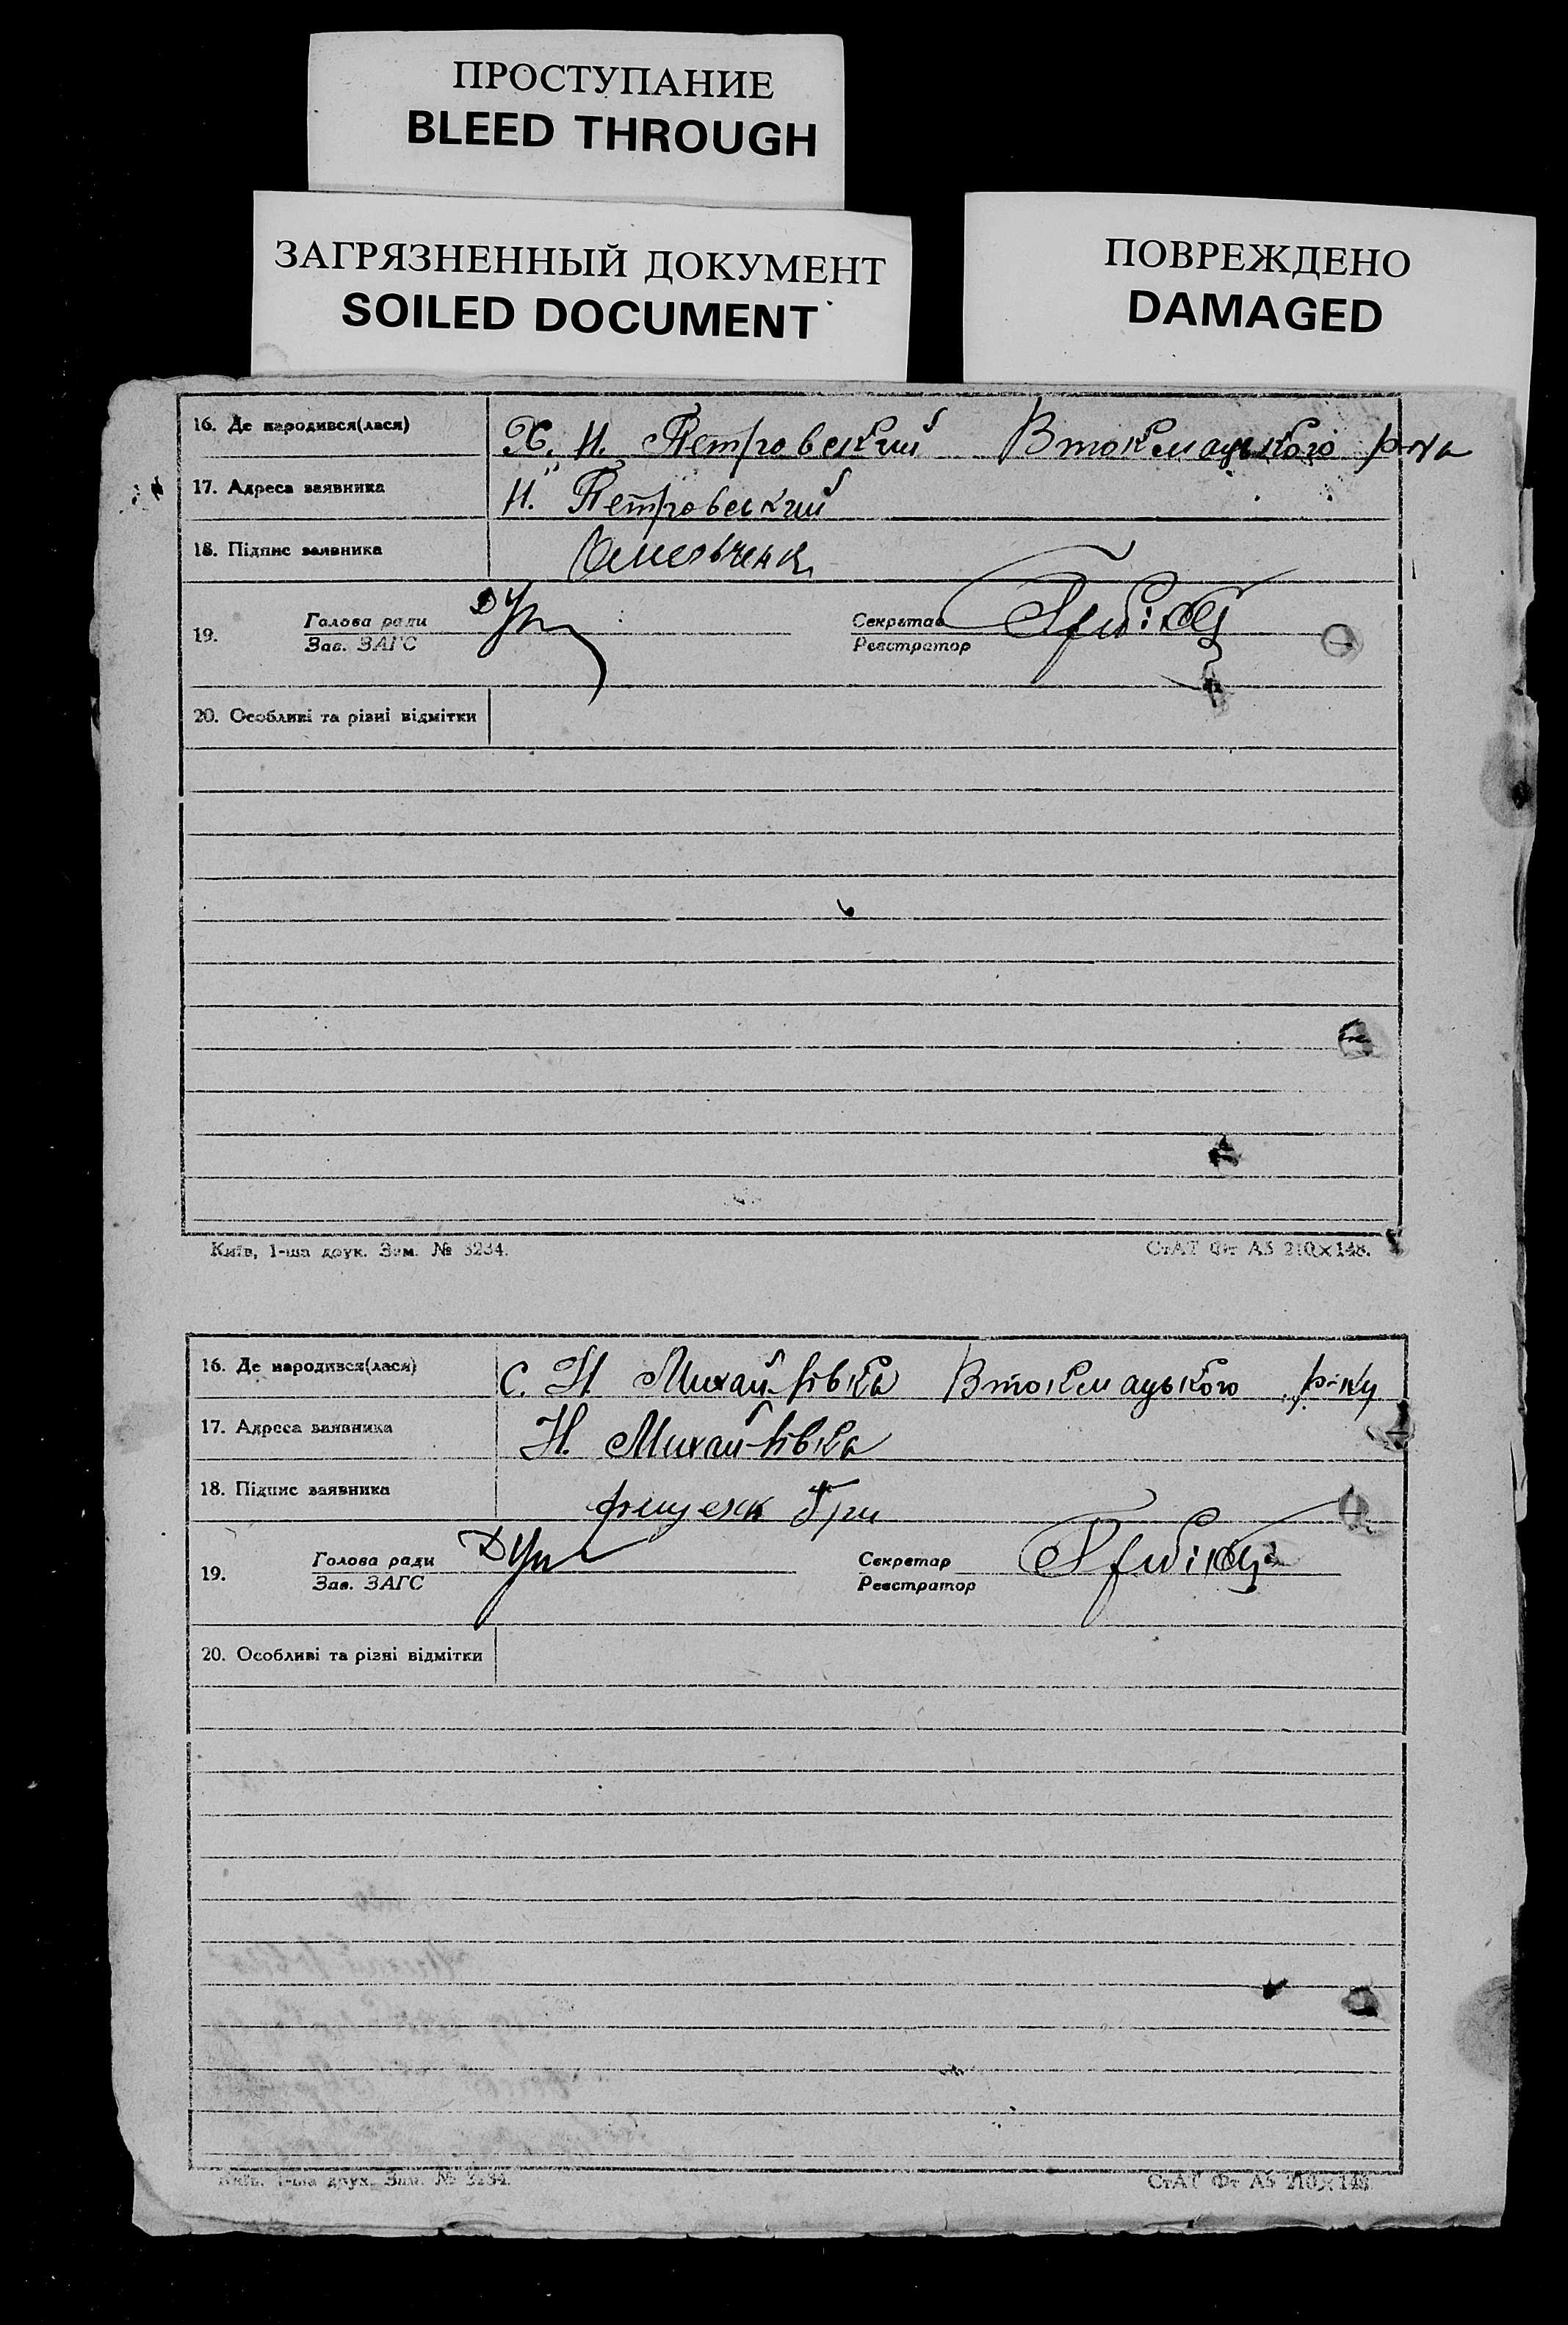 ПРОСТУПАНИЕ
BLEED THROUGH
ЗАГРЯЗНЕННЫЙ ДОКУМЕНТ
SOILED DOCUMENT
ПОВРЕЖДЕНО
DAMAGED
16. Де народився(лася) Х. Н. Петровский Втокмацького р-на
17. Адреса заявника Н. Петровський
18. Підпис заявника
19. Голова ради Секретар
Зав. ЗАГС Реєстратор
20. Особливі та різні відмітки
Київ, 1-ша друк. Зам. № 3234. СтАТ Фт А5 210×148.
16. Де народився(лася) с. Н Михайлівка Втокмацького р-ну
17. Адреса заявника Н. Михайлівка
18. Підпис заявника
19. Голова ради Секретар
Зав. ЗАГС Реєстратор
20. Особливі та різні відмітки
Київ, 1-ша друк. Зам. № 3234. СтАТ Фт А5 210×148